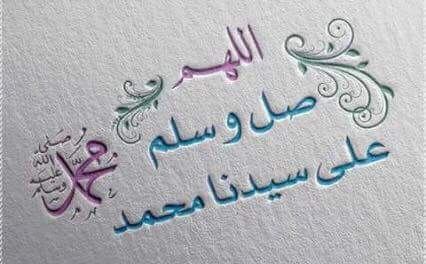 اللهم
صل وسلم
على سيدنا محمد
محمد
صلى
الله
عليه
وسلم